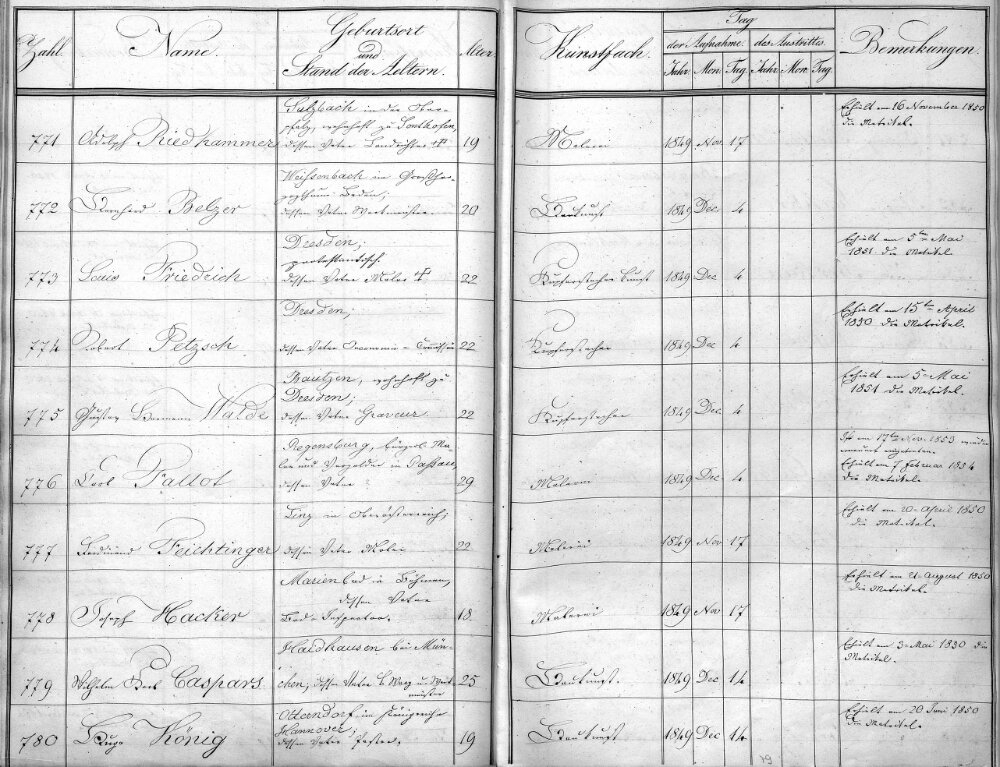 Zahl Name Geburtsort und Stand der Aeltern. Alter Kunstfach. Tag der Aufnahme des Austrittes Bemerkungen.
Jahr Mon. Tag Jahr Mon. Tag
Sulzbach in der Ober-
pfalz, wohnhaft zu Sonthofen,
771 Adolph Riedhammer dessen Vater Landrichter † 19 Malerei 1849 Nov 17 Erhielt am 16 November 1850
die Matrikel.
Weissenbach in Großher-
zogthum Baden,
772 Bernhard Belzer dessen Vater Werkmeister. 20 Baukunst 1849 Dec. 4
Dresden;
protestantisch
773 Louis Friedrich dessen Vater Maler † 22 Kupferstecher Kunst 1849 Dec 4 Erhielt am 5ten Mai
1851 die Matrikel.
Dresden;
774 Robert Petzsch dessen Vater 22 Kupferstecher 1849 Dec 4 Erhielt am 15ten April
1850 die Matrikel.
Bautzen, wohnhaft zu
Dresden;
775 Gustav Hermann Walde dessen Vater Graveur 22 Kupferstecher 1849 Dec. 4 Erhielt am 5. Mai
1851 die Matrikel
Regensburg, bürgerl. Ma-
ler und Vergolder in Passau,
776 Carl Pallot dessen Vater 29 Malerei 1849 Dec 4 Ist am 17ten Nov. 1853 wieder
erneuert eingetreten.
Erhielt am 7 Februar 1854
die Matrikel.
Linz in Oberösterreich;
777 Ferdinand Feichtinger dessen Vater Maler 22 Malerei 1849 Nov 17 Erhielt am 20. April 1850
die Matrikel.
Marienbad in Böhmen,
dessen Vater
778 Joseph Hacker Bad-Inspector. 18 Malerei 1849 Nov 17 Erhielt am 21. August 1850
die Matrikel.
Haidhausen bei Mün-
779 Wilhelm Karl Caspars chen, dessen Vater k. Weg und 25 Baukunst. 1849 Dec 14 Erhielt am 3. Mai 1850 die
meister Matrikel.
Otterndorf im Königreich
Hannover,
780 Hugo König dessen Vater Pastor. 19 Baukunst 1849 Dec 14 Erhielt am 20 Juni 1850
die Matrikel.